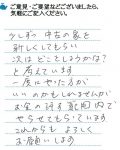 ご意見・ご要望などございましたら、
気軽にご記入ください。
少しずつ 中古の家を
新しくしてもらい
次はどこしようかな?
と考えています
度にやった方が
いいのかもしれませんが
お金の許す範囲内で
やらせてもらっています
これからも よろしく
お願いします